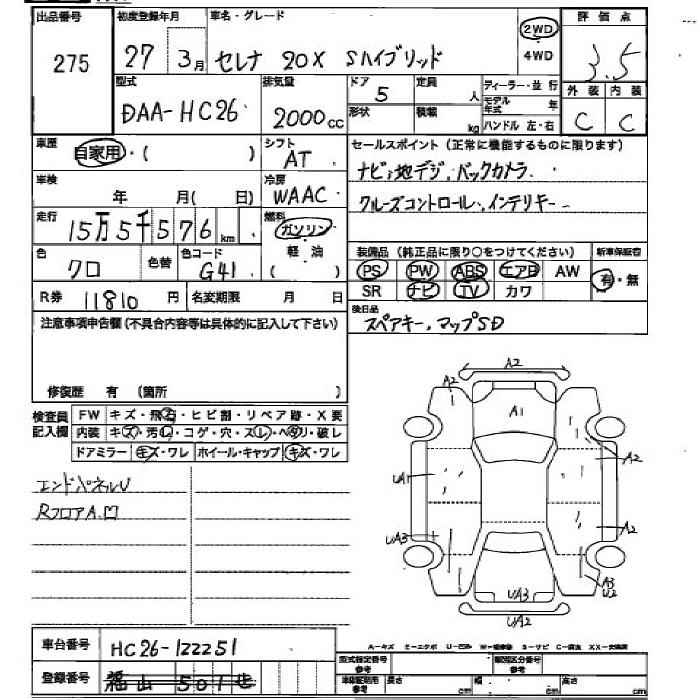 出品番号 初度登録年月 車名・グレード 2WD 評価点
275 27 3月 セレナ 20X Sハイブリッド 4WD 3.5
型式 排気量 ドア 定員 ディーラー・並行 外装 内装
DAA-HC26 2000cc 5 人 モデル年式 年 C C
形状 積載 kg ハンドル 左・右
車歴 自家用・( ) シフト AT セールスポイント(正常に機能するものに限ります)
車検 年 月( 日) 冷房 WAAC ナビ,地デジ,バックカメラ
走行 15万5千576km 燃料 ガソリン クルーズコントロール,インテリキー
色 クロ 色替 色コード G41 軽・油 ( ) 装備品(純正品に限り○をつけてください) 新車保証書
PS PW ABS エアB AW 有・無
R券 11810円 名変期限 月 日 SR ナビ TV カワ
注意事項申告欄(不具合内容等は具体的に記入して下さい) 後日品
スペアキー,マップSD
修復歴 有 (箇所 )
検査員記入欄 FW キズ・飛石・ヒビ割・リペア跡・X要
内装 キズ・汚レ・コゲ・穴・スレ・ヘタリ・破レ
ドアミラー キズ・ワレ ホイール・キャップ キズ・ワレ
エンドパネルU
RフロアA.凹
A2
A2
A1
UA1 A2
UA3 A2
A3
U2
UA3
UA2
車台番号 HC26-122251 A-キズ E-エクボ U-凹ミ S-サビ
型式指定番号 参考 類別区分番号 参考
登録番号 福山 501 せ 長さ cm 幅 cm 高さ cm